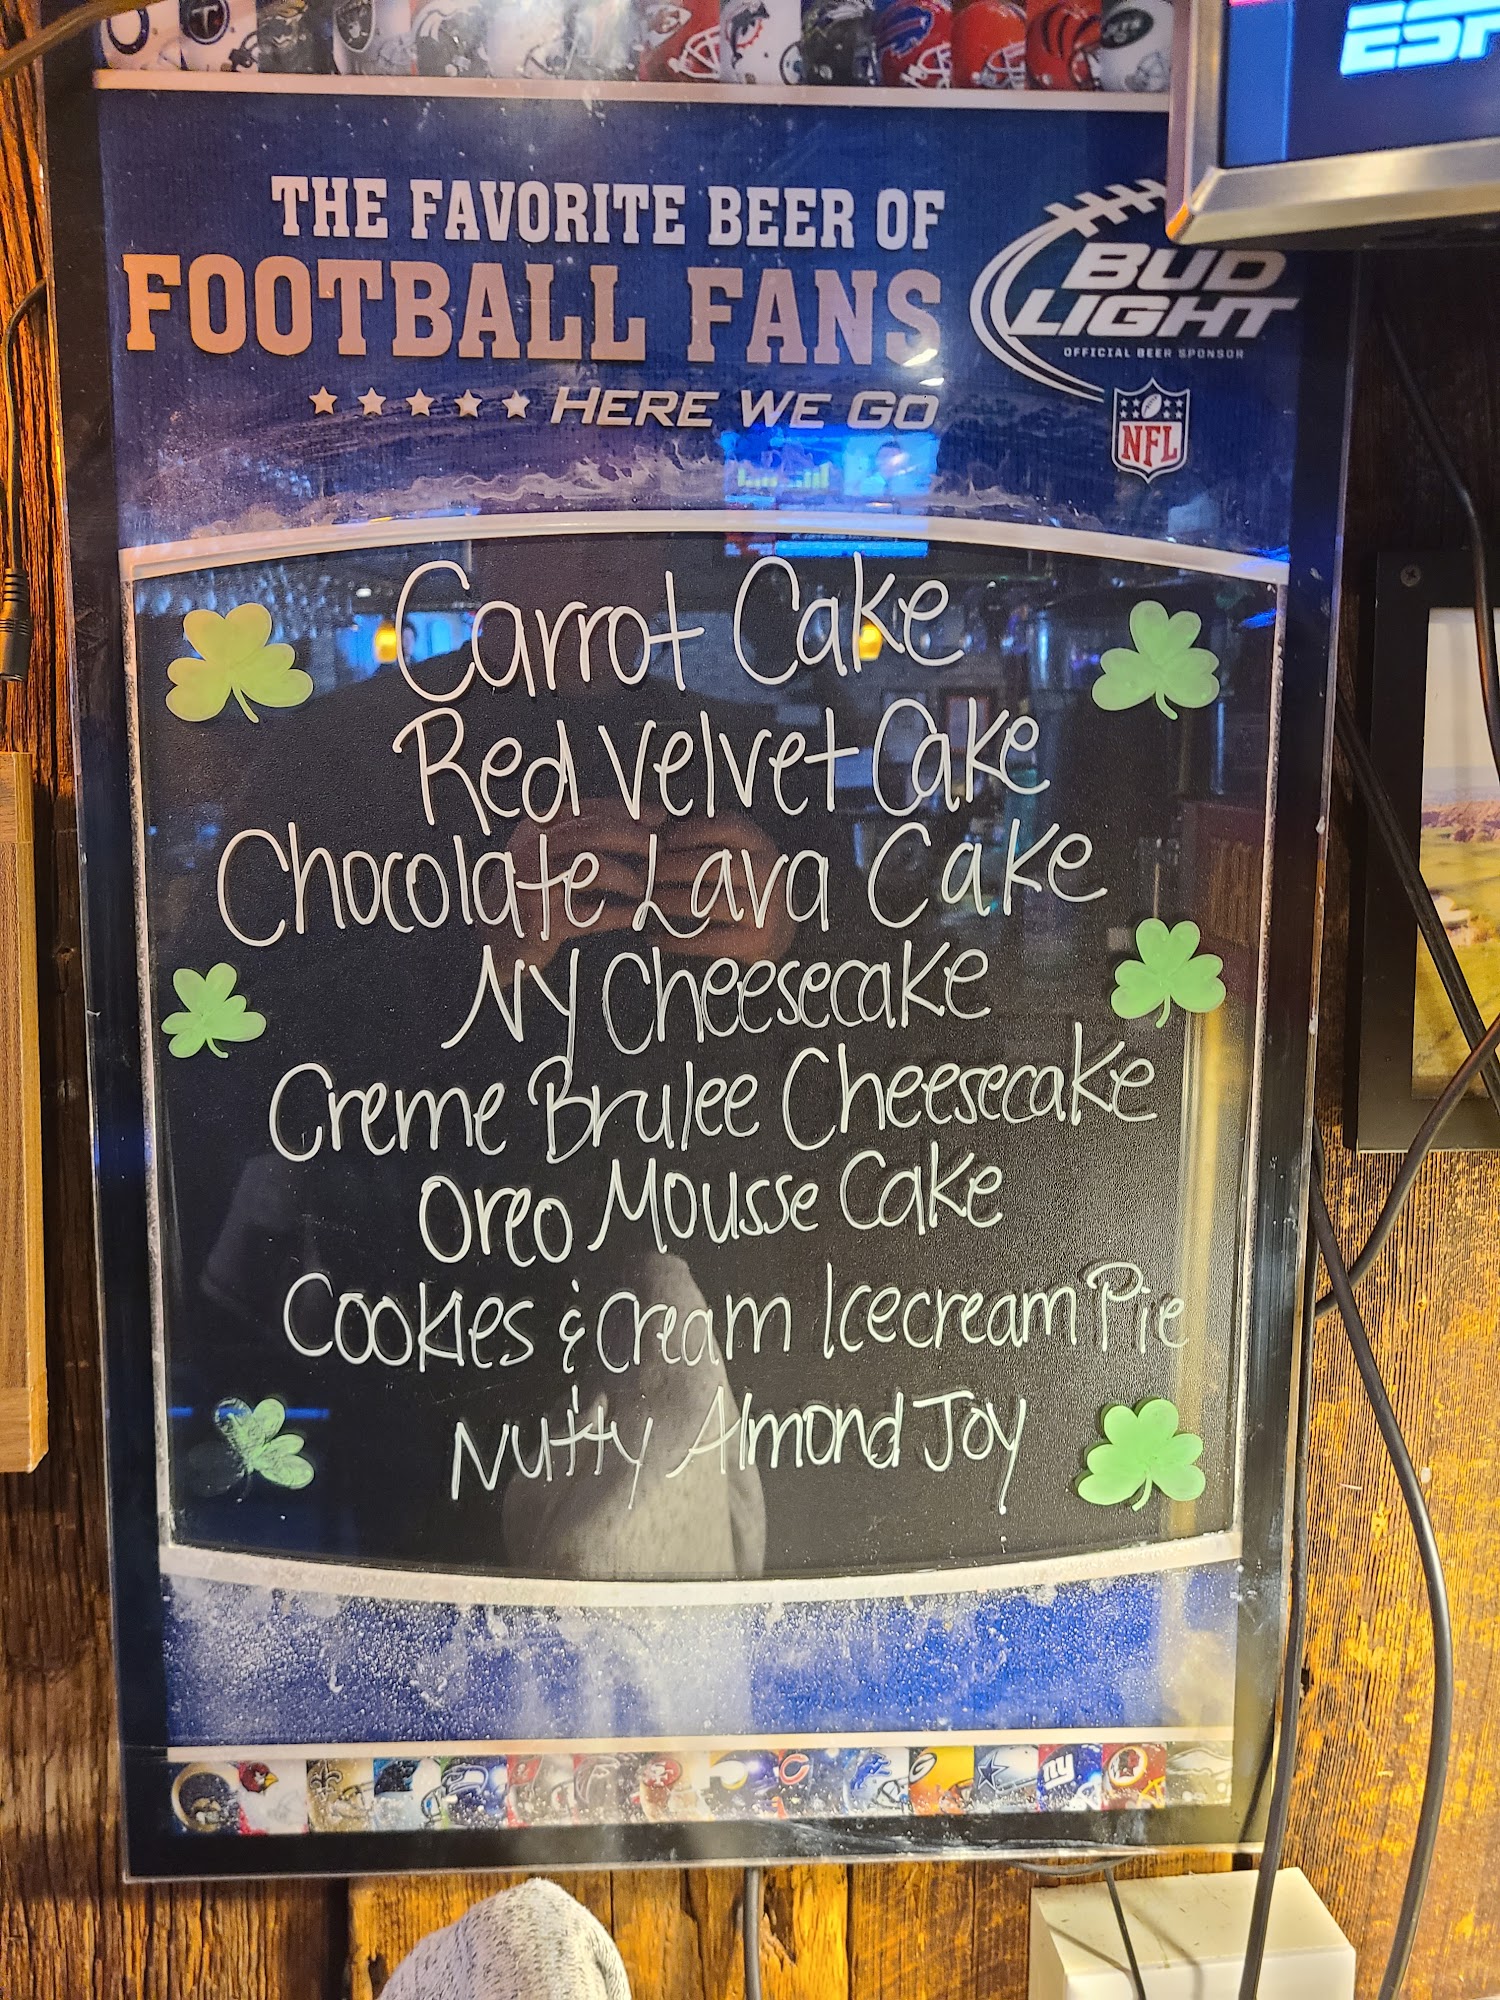 ESP
THE FAVORITE BEER OF
FOOTBALL FANS
HERE WE GO
BUD
LIGHT
OFFICIAL BEER SPONSOR
NFL
Carrot Cake
Red Velvet Cake
Chocolate Lava Cake
NY Cheesecake
Creme Brulee Cheesecake
Oreo Mousse Cake
Cookies & Cream Icecream Pie
Nutty Almond Joy
ny